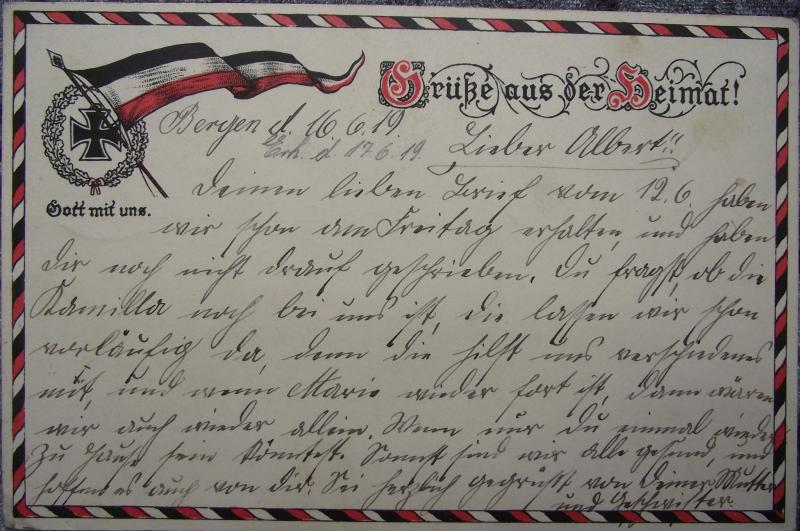 Grüße aus der Heimat!
Gott mit uns.
Bergen d. 16.6.19.
Erh. d. 17.6.19.
Lieber Albert!!
Deinen lieben Brief vom 12.6. haben
wir schon am Freitag erhalten, und haben
dir noch nicht drauf geschrieben. Du fragst, ob die
Kamilla noch bei uns ist, die lassen wir schon
vorläufig da, denn die hilft uns verschiedenes
mit, und wenn Marie wieder fort ist, dann wären
wir auch wieder allein. Wenn nur du einmal wieder
zu Hause sein könntest. Sonst sind wir alle gesund, und
hoffen es auch von dir. Sei herzlich gegrüßt von deiner Mutter
und Geschwister.